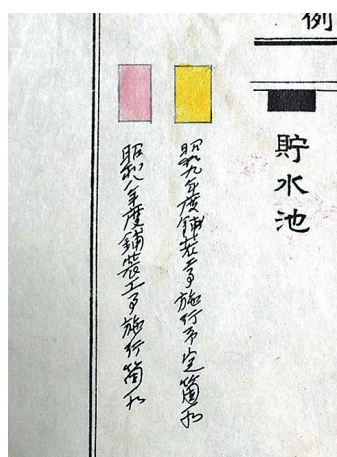 例
貯水池
昭和九年度舗装工事施行予定箇所
昭和八年度舗装工事施行箇所